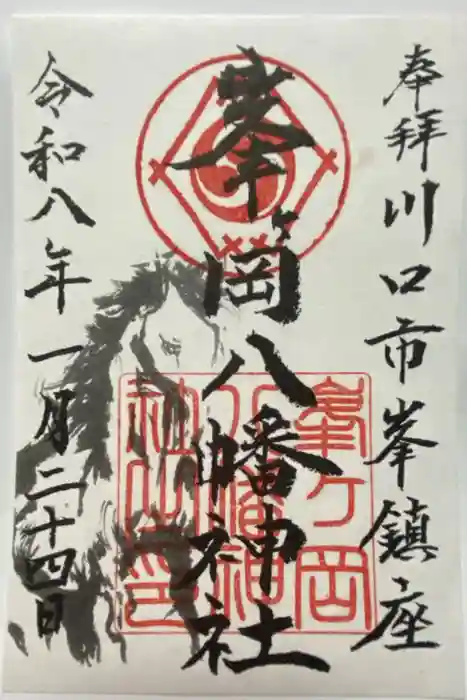 奉拝川口市峯鎮座
峯ヶ岡八幡神社
令和八年一月二十四日
峯ヶ岡
八幡神
社之印